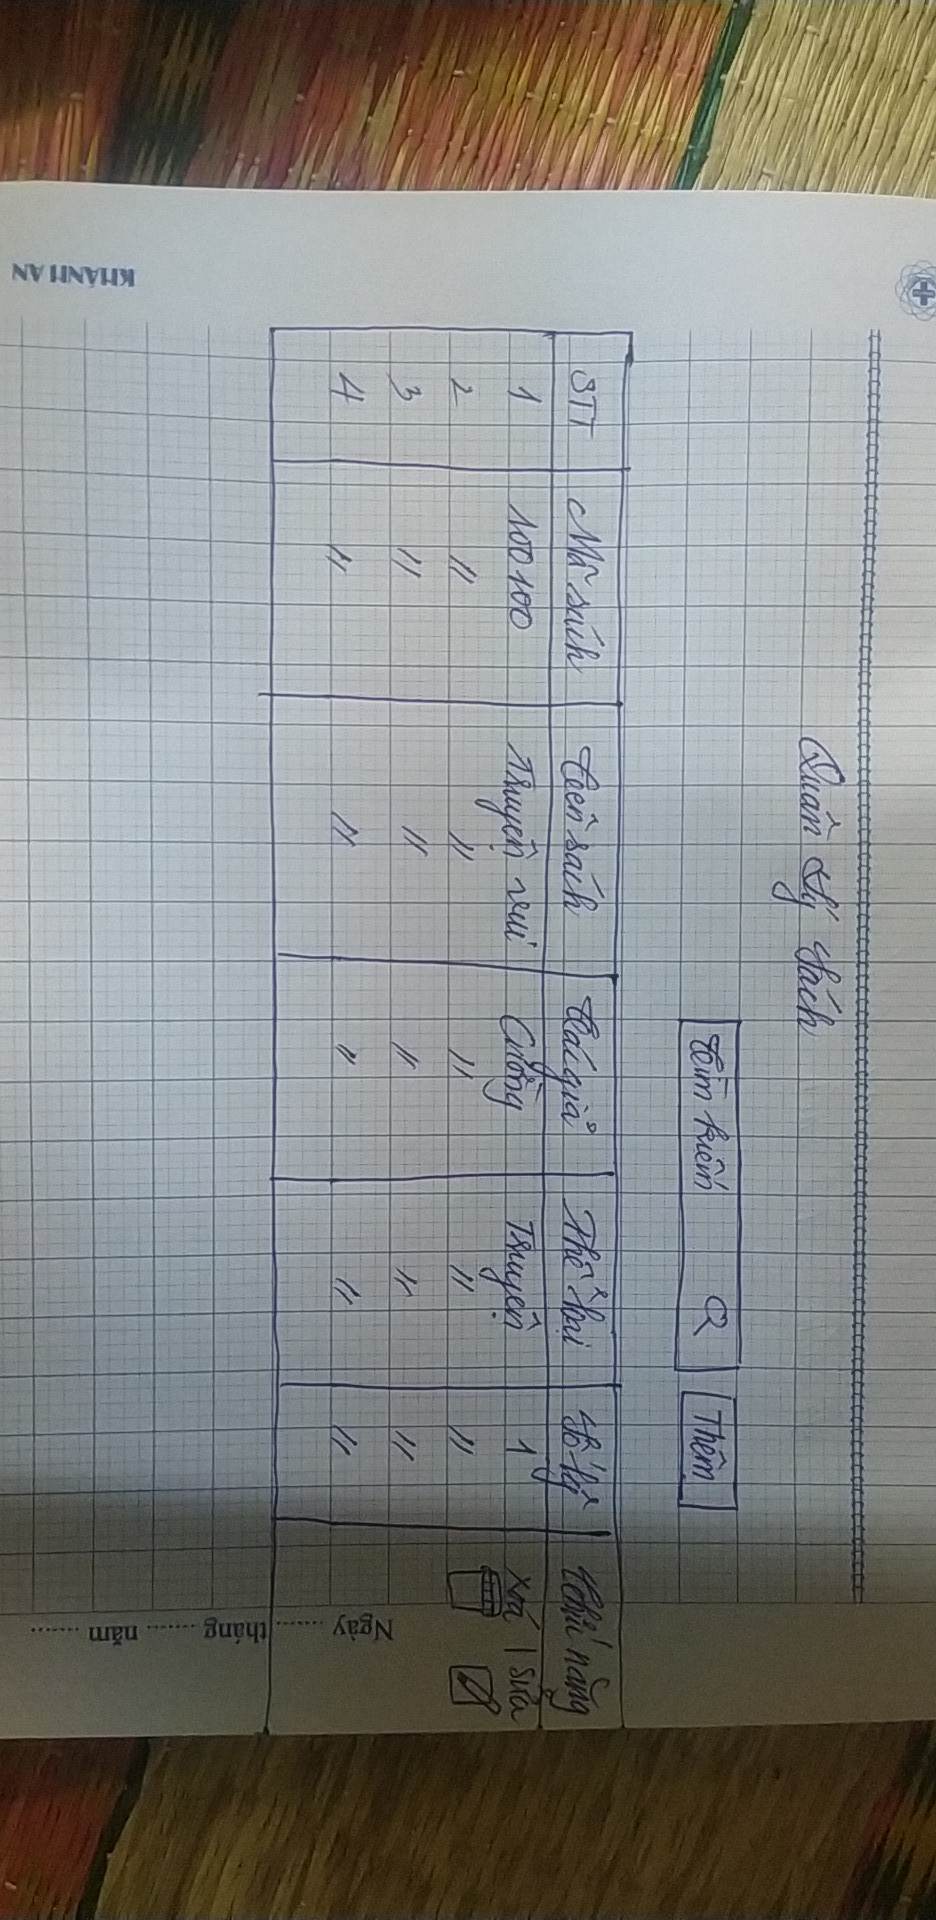 Quản lý sách
Tìm kiếm Thêm
STT Mã sách Tên sách Tác giả Thể loại Số lg Chức năng
1 100100 Truyện vui Cường Truyện 1 Xoá | Sửa
2 〃 〃 〃 〃 〃
3 〃 〃 〃 〃 〃
4 〃 〃 〃 〃 〃
Ngày ....... tháng ........ năm .......
KHÁNH AN